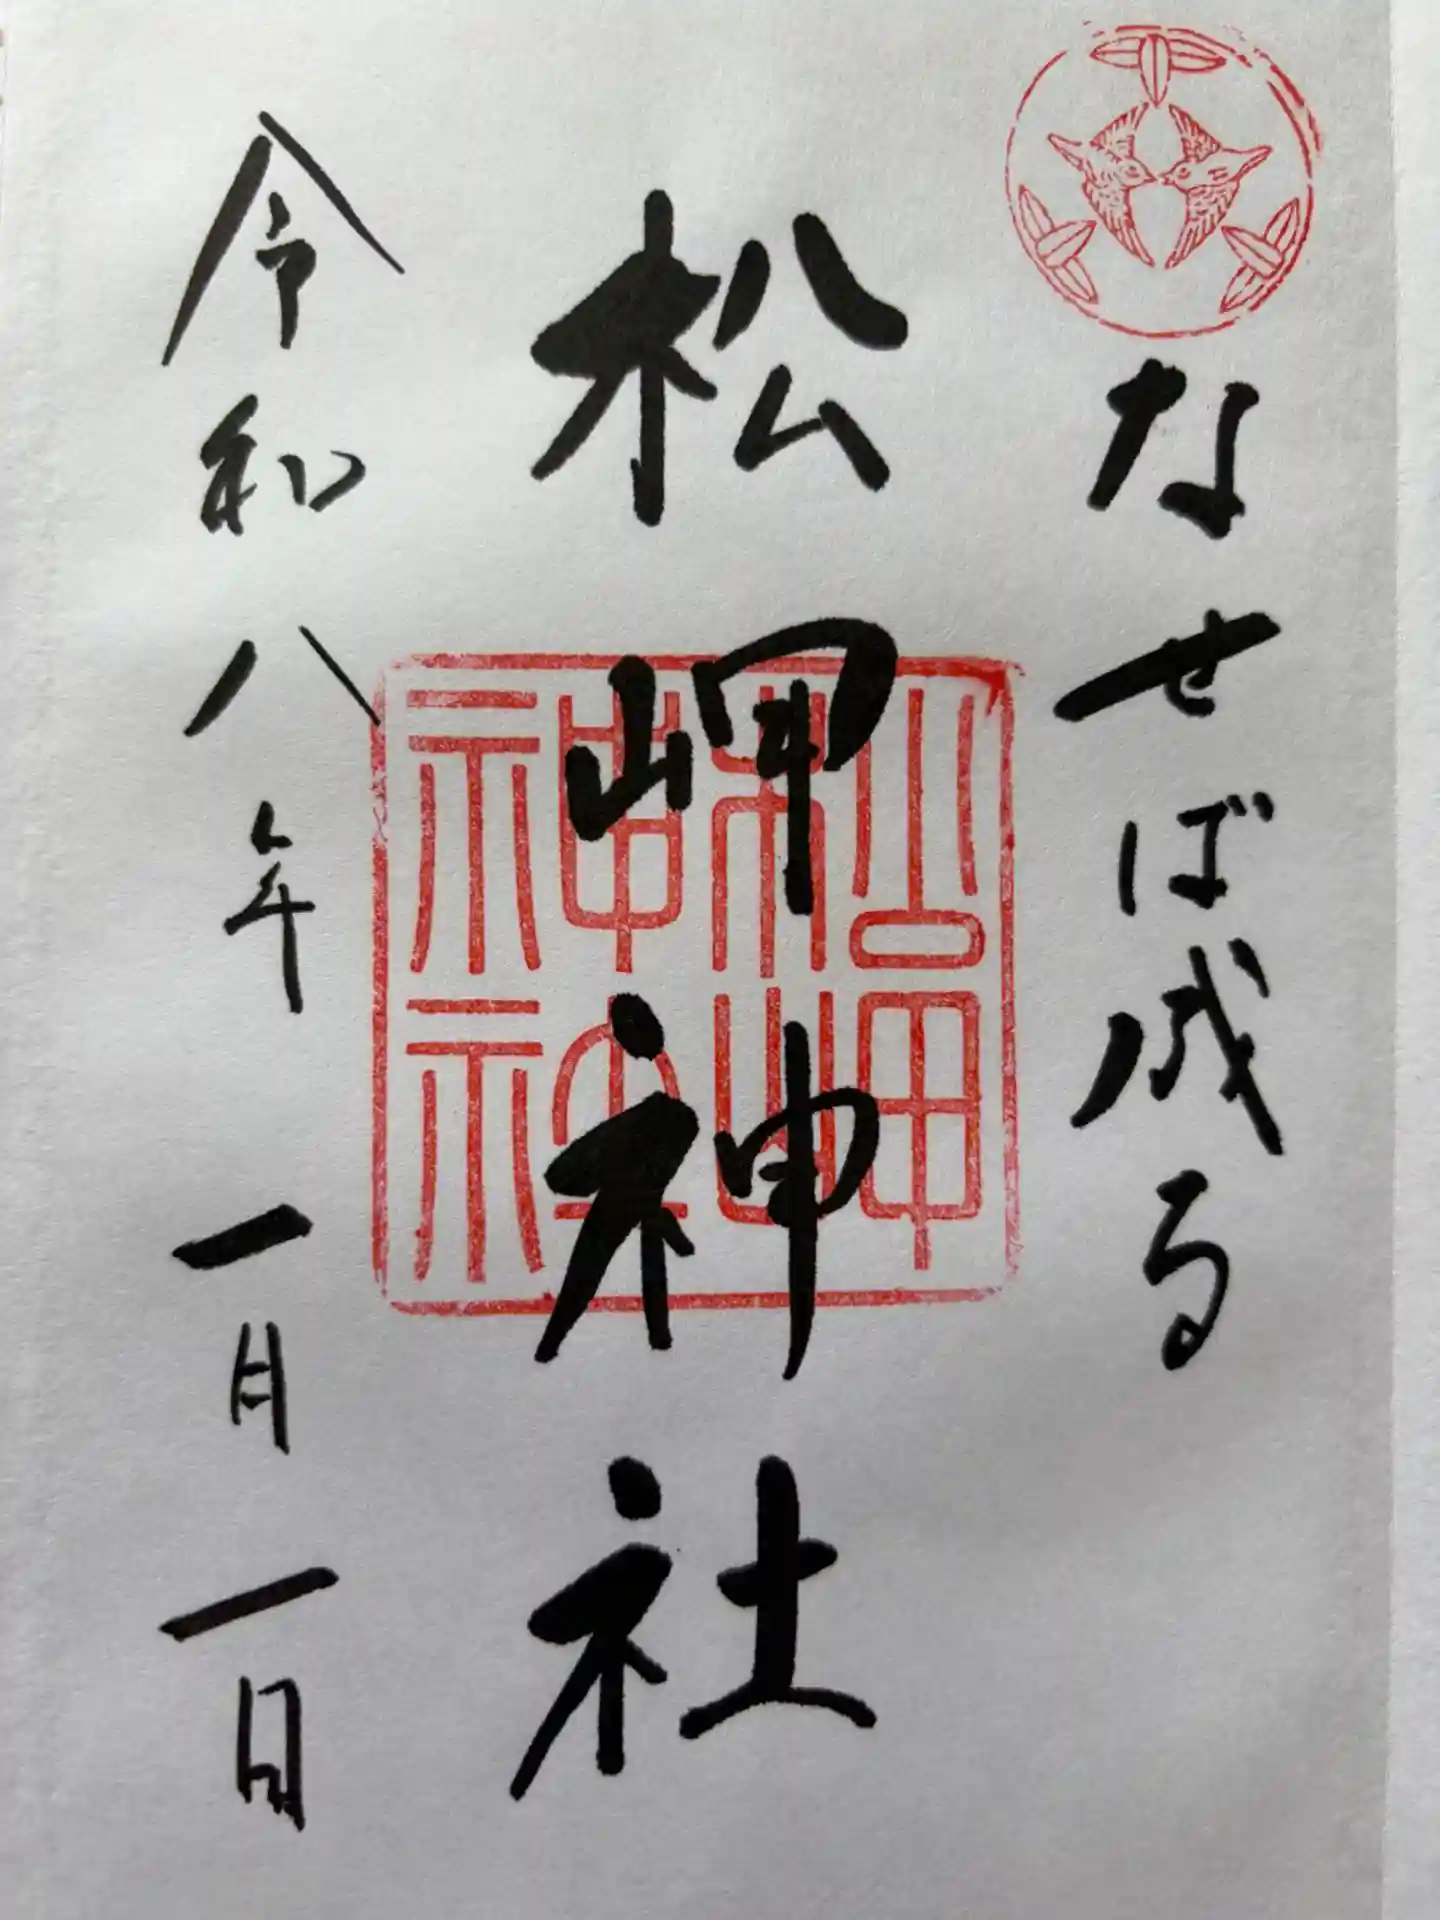 なせば成る
松岬神社
松岬神社
令和八年一月一日